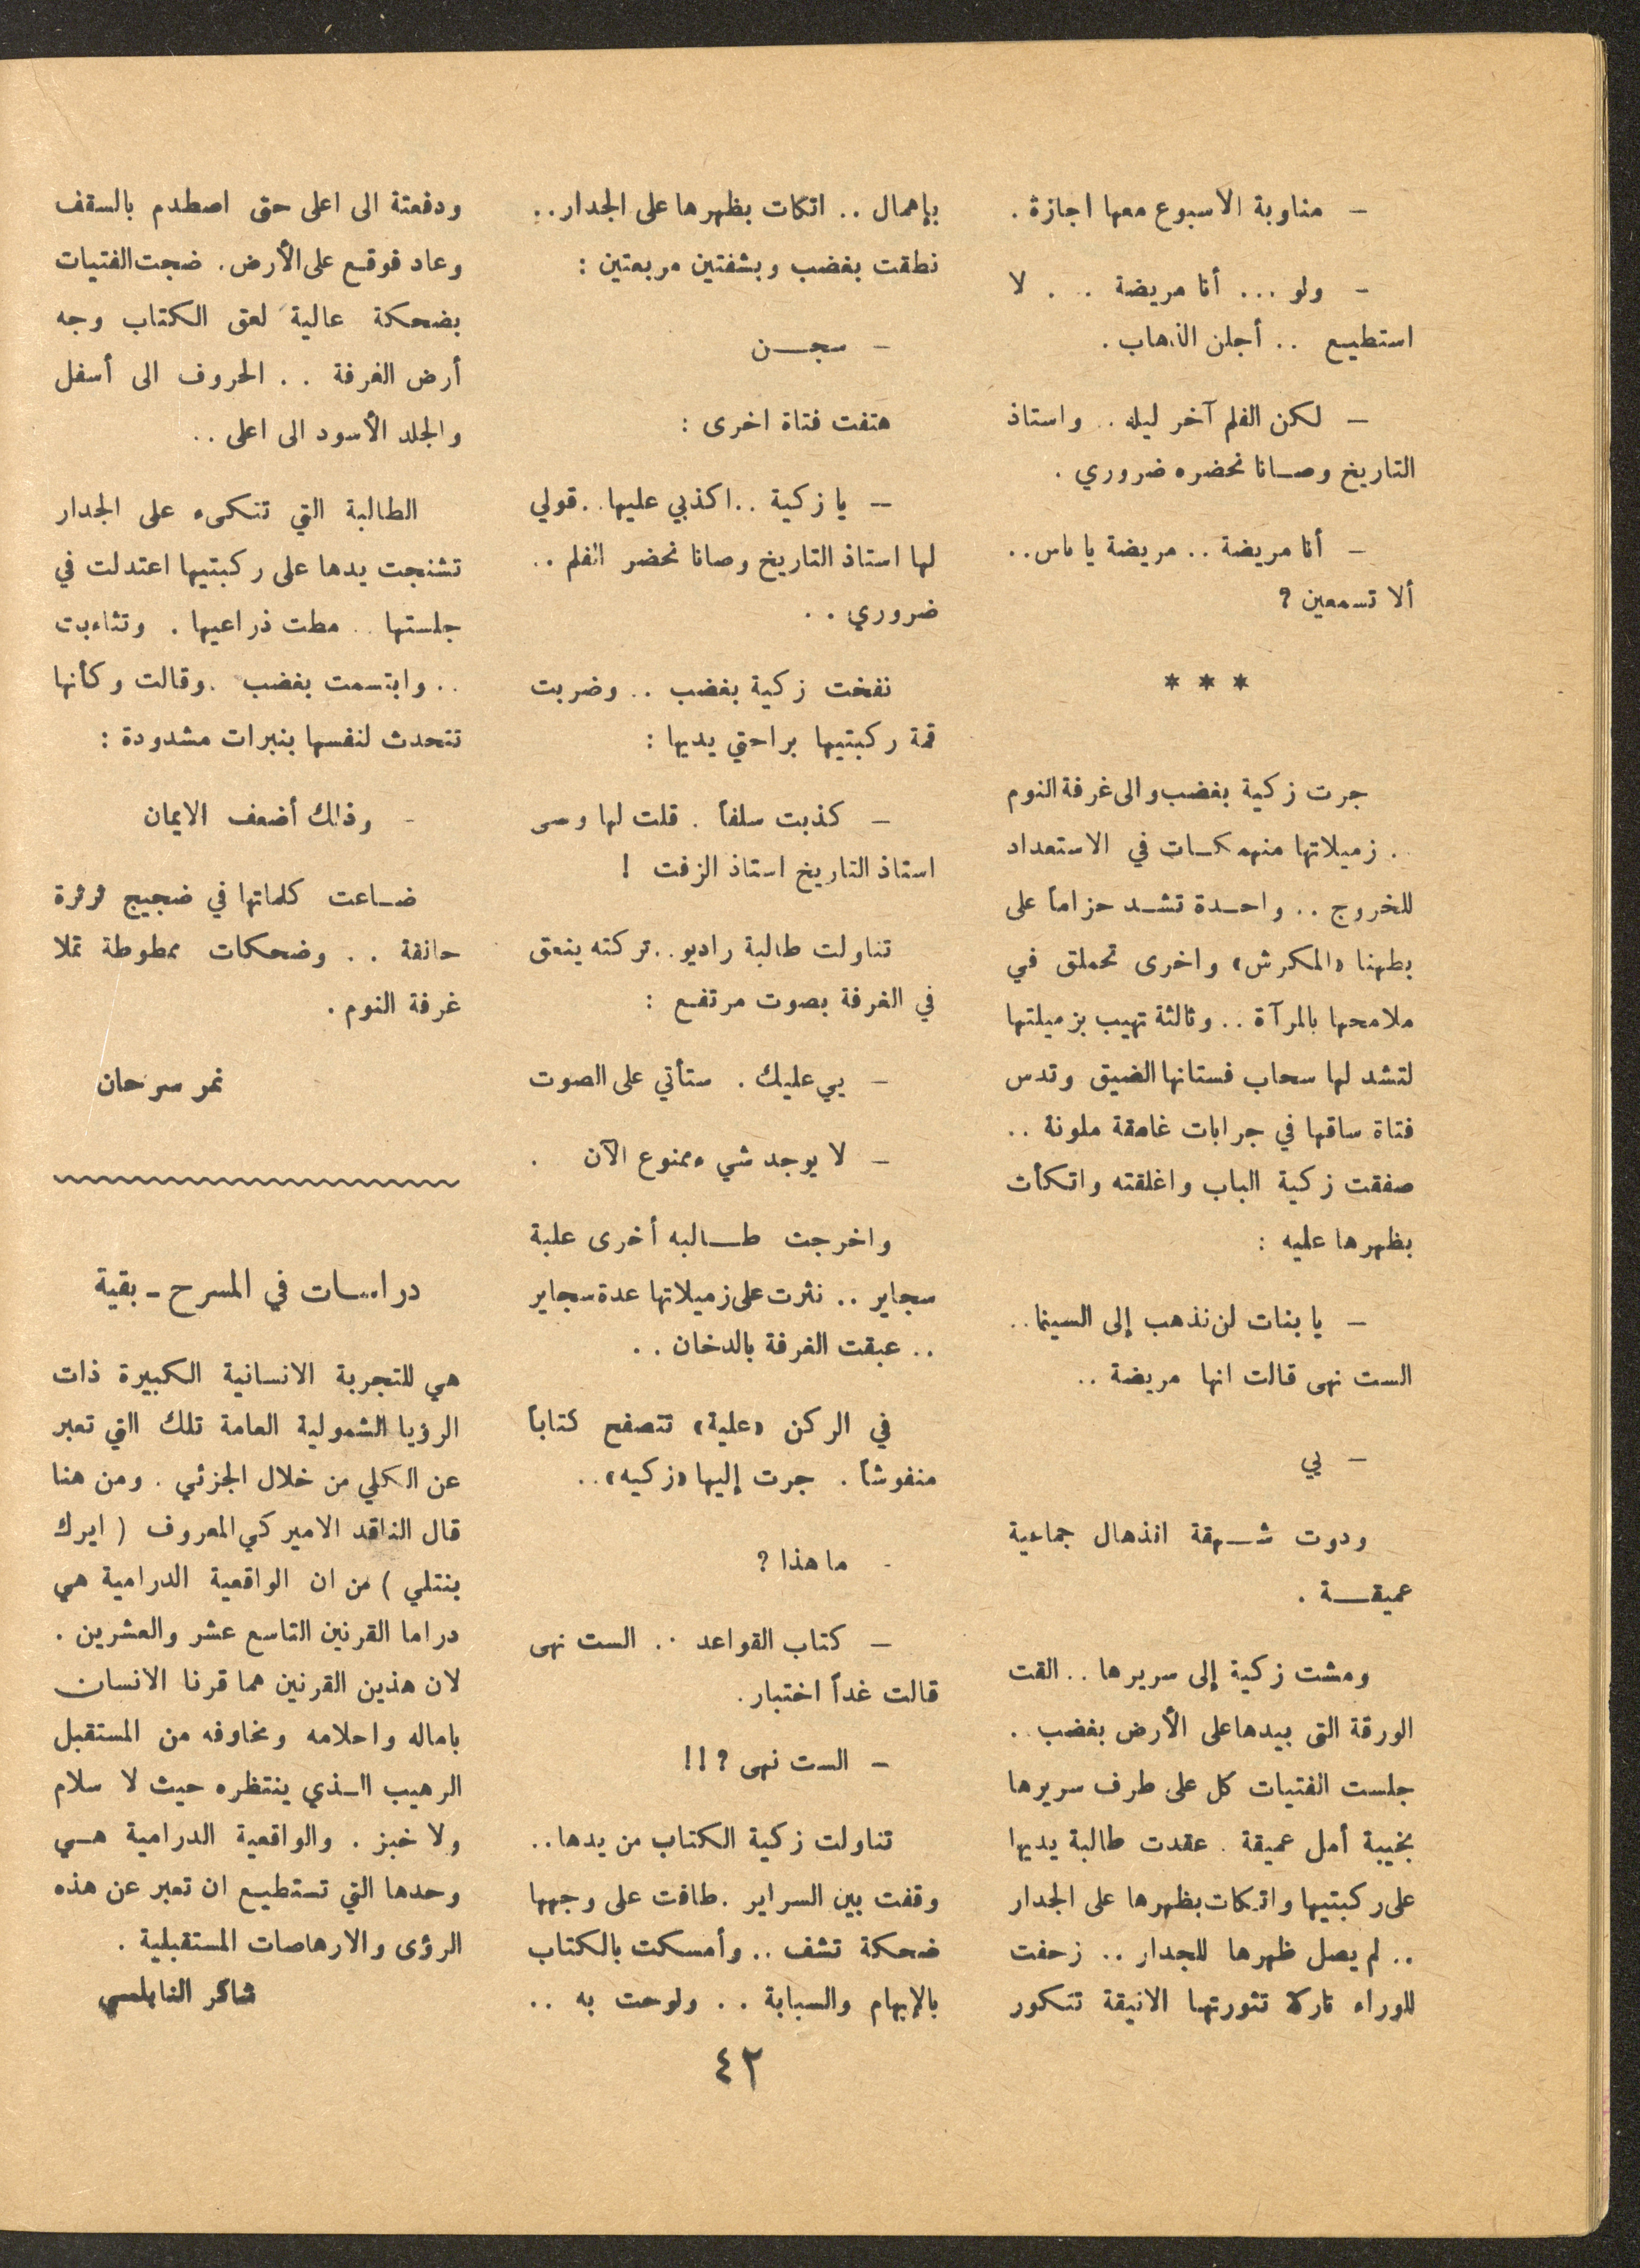 – مناوبة الاسبوع معها اجازة .
– ولو ... أنا مريضة . . . لا
استطيع .. أجلن الذهاب .
– لكن الفلم آخر ليله .. واستاذ
التاريخ وصانا نحضره ضروري .
– أنا مريضة .. مريضة يا ناس ..
ألا تسمعين ?
* * *
جرت زكية بغضب والى غرفة النوم
.. زميلاتها منهمكات في الاستعداد
للخروج .. واحدة تشد حزاماً على
بطهنا «المكرش» واخرى تحملق في
ملامحها بالمرآة .. وثالثة تهيب بزميلتها
لتشد لها سحاب فستانها الضيق وتدس
فتاة ساقها في جرابات غامقة ملونة ..
صفقت زكية الباب واغلقته واتكأت
بظهرها عليه :
– يا بنات لن نذهب إلى السينما ..
الست نهى قالت انها مريضة ..
– يي
ودوت شهقة انذهال جماعية
عميقة .
ومشت زكية إلى سريرها .. القت
الورقة التي بيدها على الأرض بغضب ..
جلست الفتيات كل على طرف سريرها
بخيبة أمل عميقة . عقدت طالبة يديها
على ركبتيها واتكات بظهرها على الجدار
.. لم يصل ظهرها للجدار .. زحفت
للوراء تاركة تنورتها الانيقة تتكور
بإهمال .. اتكات بظهرها على الجدار ..
نطقت بغضب وبشفتين مربعتين :
– سجن
هتفت فتاة اخرى :
– يا زكية .. اكذبي عليها .. قولي
لها استاذ التاريخ وصانا نحضر الفلم ..
ضروري ..
نفخت زكية بغضب .. وضربت
قمة ركبتيها براحتي يديها :
– كذبت سلفاً . قلت لها وصى
استاذ التاريخ استاذ الزفت !
تناولت طالبة راديو .. تركته ينعق
في الغرفة بصوت مرتفع :
– يي عليك . ستأتي على الصوت
– لا يوجد شيء ممنوع الآن .
واخرجت طالبه أخرى علبة
سجاير .. نثرت على زميلاتها عدة سجاير
.. عبقت الغرفة بالدخان ..
في الركن «علية» تتصفح كتاباً
منفوشاً . جرت إليها «زكيه» ..
- ما هذا ?
– كتاب القواعد .. الست نهى
قالت غداً اختبار .
– الست نهى ? ! !
تناولت زكية الكتاب من يدها ..
وقفت بين السراير . طافت على وجهها
ضحكة تشف .. وأمسكت بالكتاب
بالإبهام والسبابة .. ولوحت به ..
ودفعتة الى اعلى حتى اصطدم بالسقف
وعاد فوقع على الأرض . ضجت الفتيات
بضحكة عالية لعق الكتاب وجه
أرض الغرفة .. الحروف الى أسفل
والجلد الأسود الى اعلى ..
الطالبة التي تتكىء على الجدار
تشنجت يدها على ركبتيها اعتدلت في
جلستها .. مطت ذراعيها . وتثاءبت
.. وابتسمت بغضب . وقالت وكأنها
تتحدث لنفسها بنبرات مشدودة :
- وذلك أضعف الايمان
ضاعت كلماتها في ضجيج ثرثرة
حانقة .. وضحكات ممطوطة تملا
غرفة النوم .
نمر سرحان
دراسات في المسرح – بقية
هي للتجربة الانسانية الكبيرة ذات
الرؤيا الشمولية العامة تلك التي تعبر
عن الكلي من خلال الجزئي . ومن هنا
قال الناقد الاميركي المعروف ( ايرك
بنتلي ) من ان الواقعية الدرامية هي
دراما القرنين التاسع عشر والعشرين .
لان هذين القرنين هما قرنا الانسان
باماله واحلامه ومخاوفه من المستقبل
الرهيب الذي ينتظره حيث لا سلام
ولا خبز . والواقعية الدرامية هي
وحدها التي تستطيع ان تعبر عن هذه
الرؤى والارهاصات المستقبلية .
شاكر النابلسي
٤٢